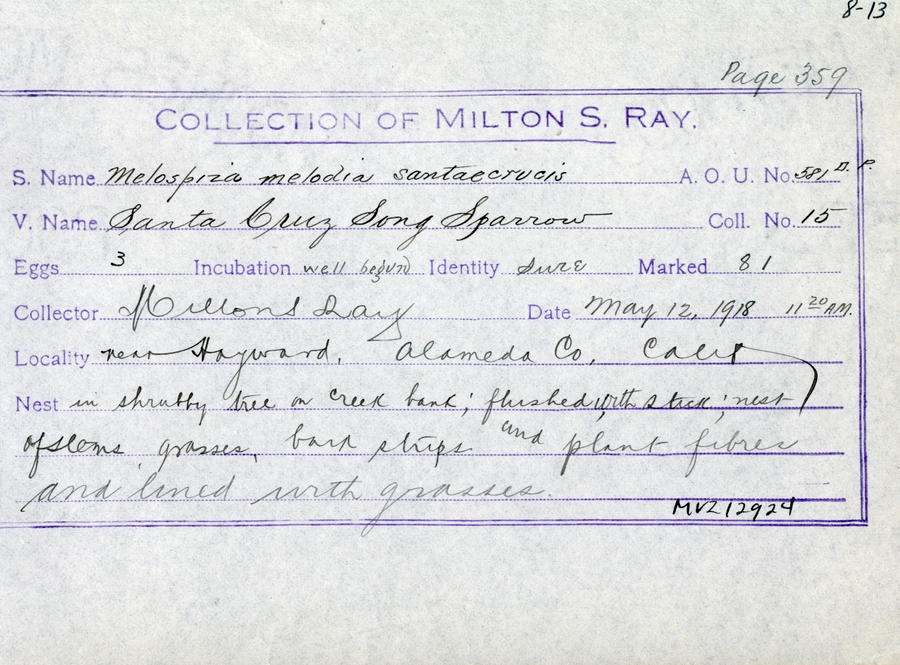 8-13
Page 359
COLLECTION OF MILTON S. RAY.
S. Name Melospiza melodia santaecrucis A. O. U. No. 581 D. P.
V. Name Santa Cruz Song Sparrow Coll. No. 15
Eggs 3 Incubation well begun Identity sure Marked 81
Collector Milton S Ray Date May 12, 1918 11 20 A.M.
Locality near Hayward, Alameda Co, Calif
Nest in shrubby tree on creek bank; flushed with stick; nest
of stems, grasses, bark strips and plant fibres
and lined with grasses.
MVZ 12924